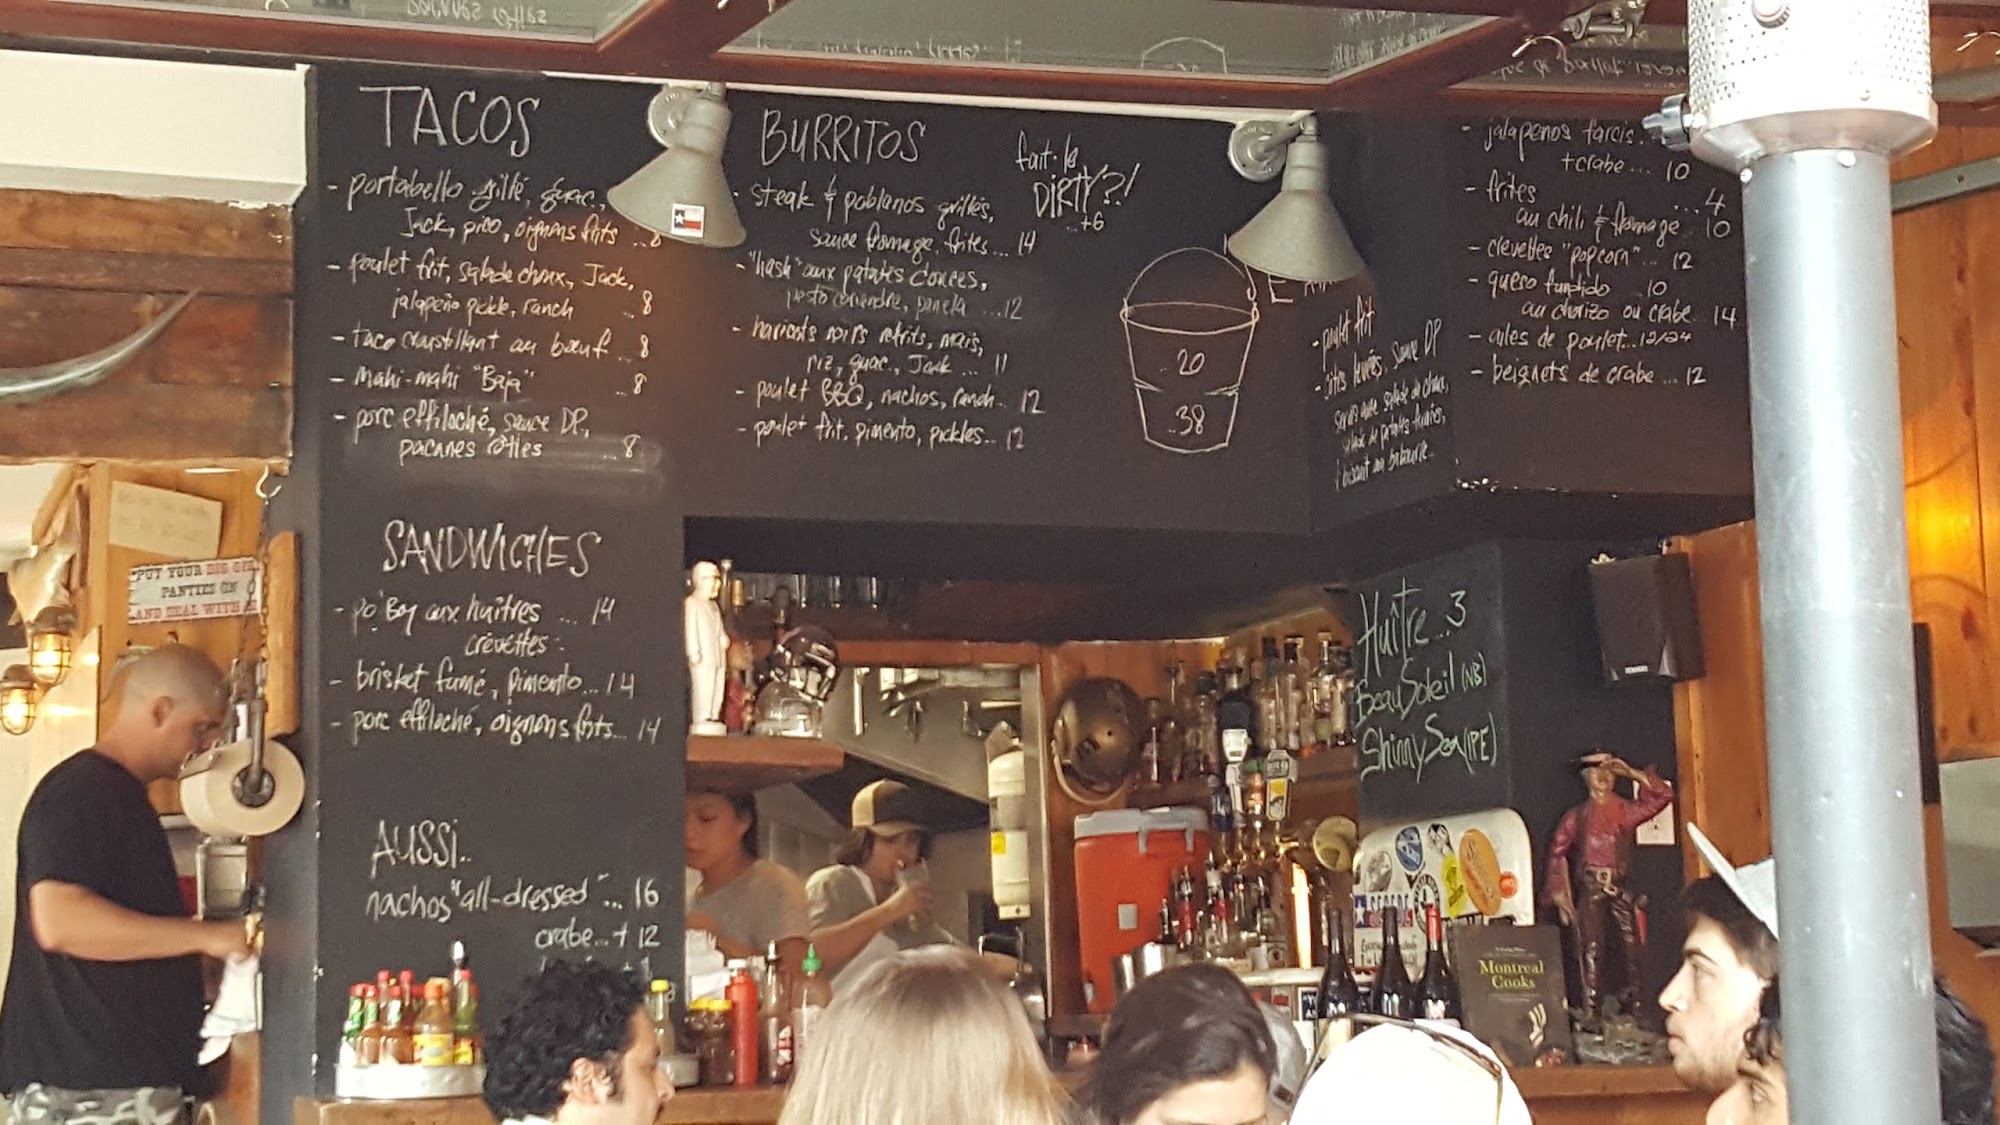 TACOS
- portabello grillé, guac.,
Jack, pico, oignons frits ...8
- poulet frit, salade choux, Jack,
jalapeño pickle, ranch ...8
- Taco croustillant au bœuf ... 8
- Mahi-mahi "Baja" ..8
- porc effiloché, sauce DP,
pacanes rôties ...8
SANDWICHES
- po' Boy aux huîtres ... 14
crevettes
- brisket fumé, pimento... 14
- porc effiloché, oignons frits... 14
AUSSI..
nachos "all-dressed" ... 16
crabe...+ 12
BURRITOS
- steak & poblanos grillés,
sauce fromage, frites... 14
- "hash" aux patates
pesto coriandre, panela ...12
- haricots noirs refrits, maïs,
riz, guac., Jack ... 11
- poulet BBQ, nachos, ranch.. 12
- poulet frit, pimento, pickles... 12
fait-le
DIRTY?!
..+6
20
..38
- poulet frit
- côtes levées, sauce DP
salade de choux,
salade de patates
- jalapenos farcis.
+crabe... 10
- frites ...4
au chili & fromage.. 10
- crevettes "popcorn".. 12
- queso fundido ..10
au chorizo ou crabe.. 14
- ailes de poulet...12/24
- beignets de crabe ... 12
Huître...3
BeauSoleil (NB)
Shinny Sea (IPE)
PUT YOUR BIG GI
PANTIES ON
AND DEAL WITH
Montreal
Cooks